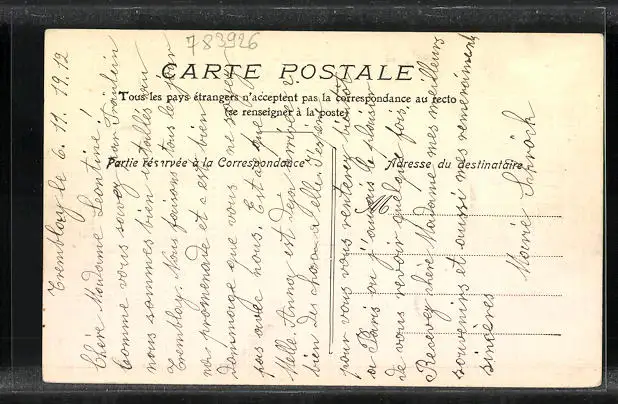 783926
CARTE POSTALE
Tous les pays étrangers n'acceptent pas la correspondance au recto
(se renseigner à la poste)
Partie réservée à la Correspondance
Adresse du destinataire
M
Tremblay le 6. 11. 1912
Chère Madame Leontine!
Comme vous savez par Fräulein
nous sommes bien installés au
Tremblay. Nous faisons tous les jour
nos promenade et c'est bien
dommage que vous ne soyez
pas avec nous. Est ce que
Melle Anna est déjà arrivée?
bien des choses à elle.
pour vous
à Paris ou j'aurais le plaisir
de vous revoir quelque fois.
Recevez chère Madame mes meilleurs
souvenirs et aussi mes remerciments
sincères
Marie